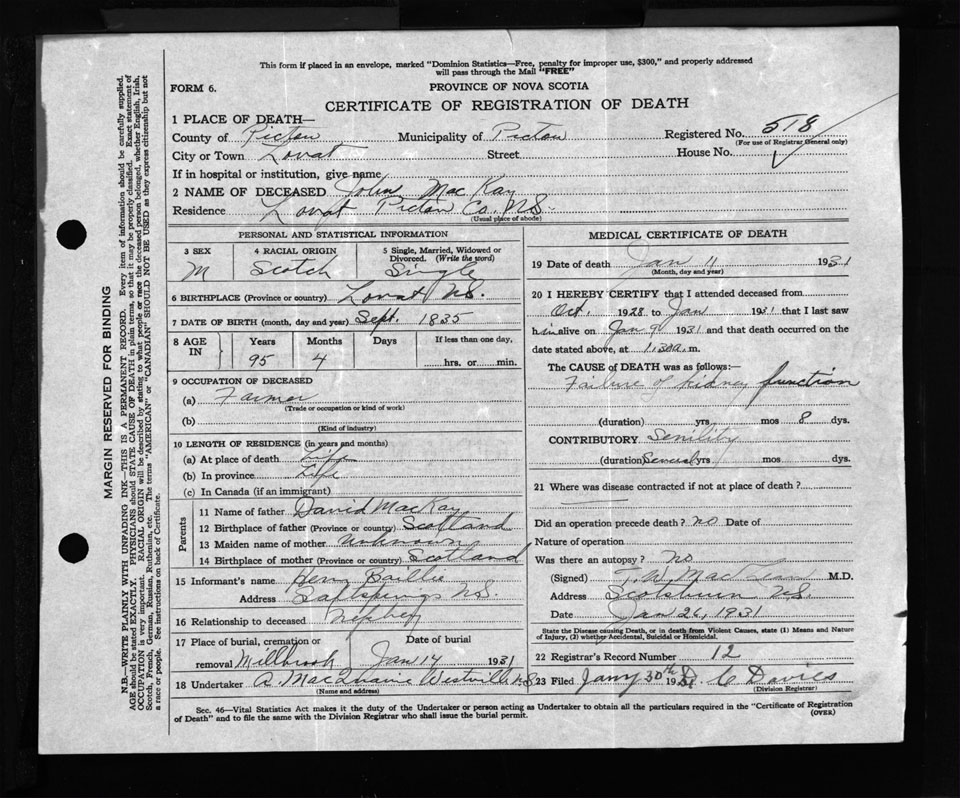 This form if placed in an envelope, marked "Dominion Statistics—Free, penalty for improper use, $300," and properly addressed
will pass through the Mail "FREE"
FORM 6.
PROVINCE OF NOVA SCOTIA
CERTIFICATE OF REGISTRATION OF DEATH
1 PLACE OF DEATH—
County of Pictou Municipality of Pictou Registered No. 518
(For use of Registrar General only)
City or Town Lovat Street House No.
If in hospital or institution, give name
2 NAME OF DECEASED John MacKay
Residence Lovat Pictou Co. N.S.
(Usual place of abode)
PERSONAL AND STATISTICAL INFORMATION
3 SEX 4 RACIAL ORIGIN 5 Single, Married, Widowed or Divorced. (Write the word)
M Scotch Single
6 BIRTHPLACE (Province or country) Lovat N.S.
7 DATE OF BIRTH (month, day and year) Sept. 1835
8 AGE IN Years Months Days If less than one day,
95 4 hrs. or min.
9 OCCUPATION OF DECEASED
(a) Farmer
(Trade or occupation or kind of work)
(b)
(Kind of industry)
10 LENGTH OF RESIDENCE (in years and months)
(a) At place of death Life
(b) In province Life
(c) In Canada (if an immigrant)
Parents
11 Name of father David MacKay
12 Birthplace of father (Province or country) Scotland
13 Maiden name of mother Unknown
14 Birthplace of mother (Province or country) Scotland
15 Informant's name Henry Baillie
Address Saltsprings N.S.
16 Relationship to deceased Nephew
17 Place of burial, cremation or Date of burial
removal Millbrook Jan 14 1931
18 Undertaker A. MacQuarrie Westville N.S.
(Name and address)
MEDICAL CERTIFICATE OF DEATH
19 Date of death Jan 11 1931
(Month, day and year)
20 I HEREBY CERTIFY that I attended deceased from
Oct. 1928 to Jan 1931 that I last saw
him alive on Jan 9 1931 and that death occurred on the
date stated above, at 1.30 a.m.
The CAUSE of DEATH was as follows:—
Failure of kidney function
(duration) yrs mos 8 dys.
CONTRIBUTORY Senility
(duration) Several yrs mos dys.
21 Where was disease contracted if not at place of death?
Did an operation precede death? no Date of
Nature of operation
Was there an autopsy? No
(Signed) T.W. M.D.
Address Scotsburn N.S.
Date Jan 26, 1931
State the Disease causing Death, or in death from Violent Causes, state (1) Means and Nature
of Injury, (2) whether Accidental, Suicidal or Homicidal.
22 Registrar's Record Number 12
23 Filed Janry 30th 1931 C Davies
(Division Registrar)
Sec. 46—Vital Statistics Act makes it the duty of the Undertaker or person acting as Undertaker to obtain all the particulars required in the "Certificate of Registration
of Death" and to file the same with the Division Registrar who shall issue the burial permit.
(OVER)
MARGIN RESERVED FOR BINDING
N.B.—WRITE PLAINLY WITH UNFADING INK—THIS IS A PERMANENT RECORD. Every item of information should be carefully supplied.
AGE should be stated EXACTLY. PHYSICIANS should STATE CAUSE OF DEATH in plain terms, so that it may be properly classified. Exact statement of
OCCUPATION is very important. RACIAL ORIGIN will be described by stating to what people or race the deceased person belonged, whether English, Irish,
Scotch, French, German, Russian, Ruthenian, etc. The terms "AMERICAN" or "CANADIAN" SHOULD NOT BE USED as they express citizenship but not
a race or people. See instructions on back of Certificate.